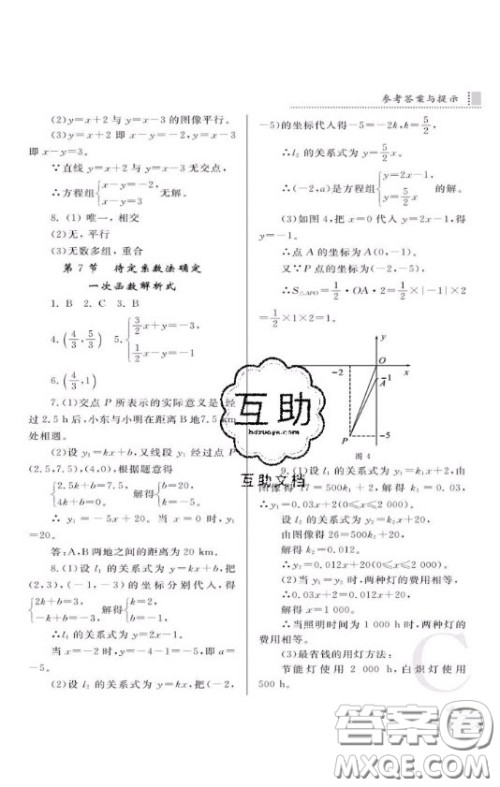 参考答案与提示
(2)y=x+2 与 y=x-3 的图像平行。
(3)y=x+2 即 x-y=-2,y=x-3
即 x-y=3。
∵直线 y=x+2 与 y=x-3 无交点,
∴方程组{x-y=-2, x-y=3 无解。
8.(1)唯一,相交
(2)无,平行
(3)无数多组,重合
第 7 节 待定系数法确定
一次函数解析式
1. B 2. C 3. B
4.(4/3,5/3) 5.{3/2x+y=-3, 1/2x-y=-1
6.(4/3,1)
7.(1)交点 P 所表示的实际意义是:经
过 2.5 h 后,小东与小明在距离 B地7.5 km
处相遇。
(2)设 y₁=kx+b,又线段 y₁ 经过点 P
(2.5,7.5),(4,0),根据题意得
{2.5k+b=7.5, 4k+b=0。 解得{k=-5, b=20。
∴ y₁=-5x+20。当 x=0 时,y₁
=20。
答:A,B 两地之间的距离为 20 km。
8.(1)设 l₁ 的关系式为 y=kx+b,把
(2,3),(-1,-3)的坐标分别代入,得
{2k+b=3, -k+b=-3。 解得{k=2, b=-1。
∴l₁ 的关系式为 y=2x-1。
当 x=-2 时,y=-5,即 a=
-5。
(2)设 l₂ 的关系式为 y=kx,把(-2,
-5)的坐标代入得-5=-2k,k=5/2,
∴l₂ 的关系式为 y=5/2x。
∴(-2,a)是方程组{y=2x-1, y=5/2x 的解。
(3)如图 4,把 x=0 代入 y=2x-1,得
y=-1。
∴点 A 的坐标为(0,-1)。
又∵P 点的坐标为(-2,-5),
∴S△APO=1/2·OA·2=1/2×|-1|×2
=1/2×1×2=1。
y
-2
O
x
A
-1
P
-5
图 4
9.(1)设 l₁ 的关系式为 y₁=k₁x+2,由
图像得 17=500k₁+2,解得 k₁=0.03,
∴y₁=0.03x+2(0≤x≤2 000)。
设 l₂ 的关系式为 y₂=k₂x+20,
由图像得 26=500k₂+20,
解得 k₂=0.012。
∴y₂=0.012x+20(0≤x≤2 000)。
(2)当 y₁=y₂ 时,两种灯的费用相等,
∴0.03x+2=0.012x+20,
解得 x=1 000。
∴当照明时间为 1 000 时,两种灯的费
用相等。
(3)最省钱的用灯方法:
节能灯使用 2 000 h,白炽灯使用
500 h。
互助
hdzuoye.com
互助文档
C
答案圈
MXQE.COM